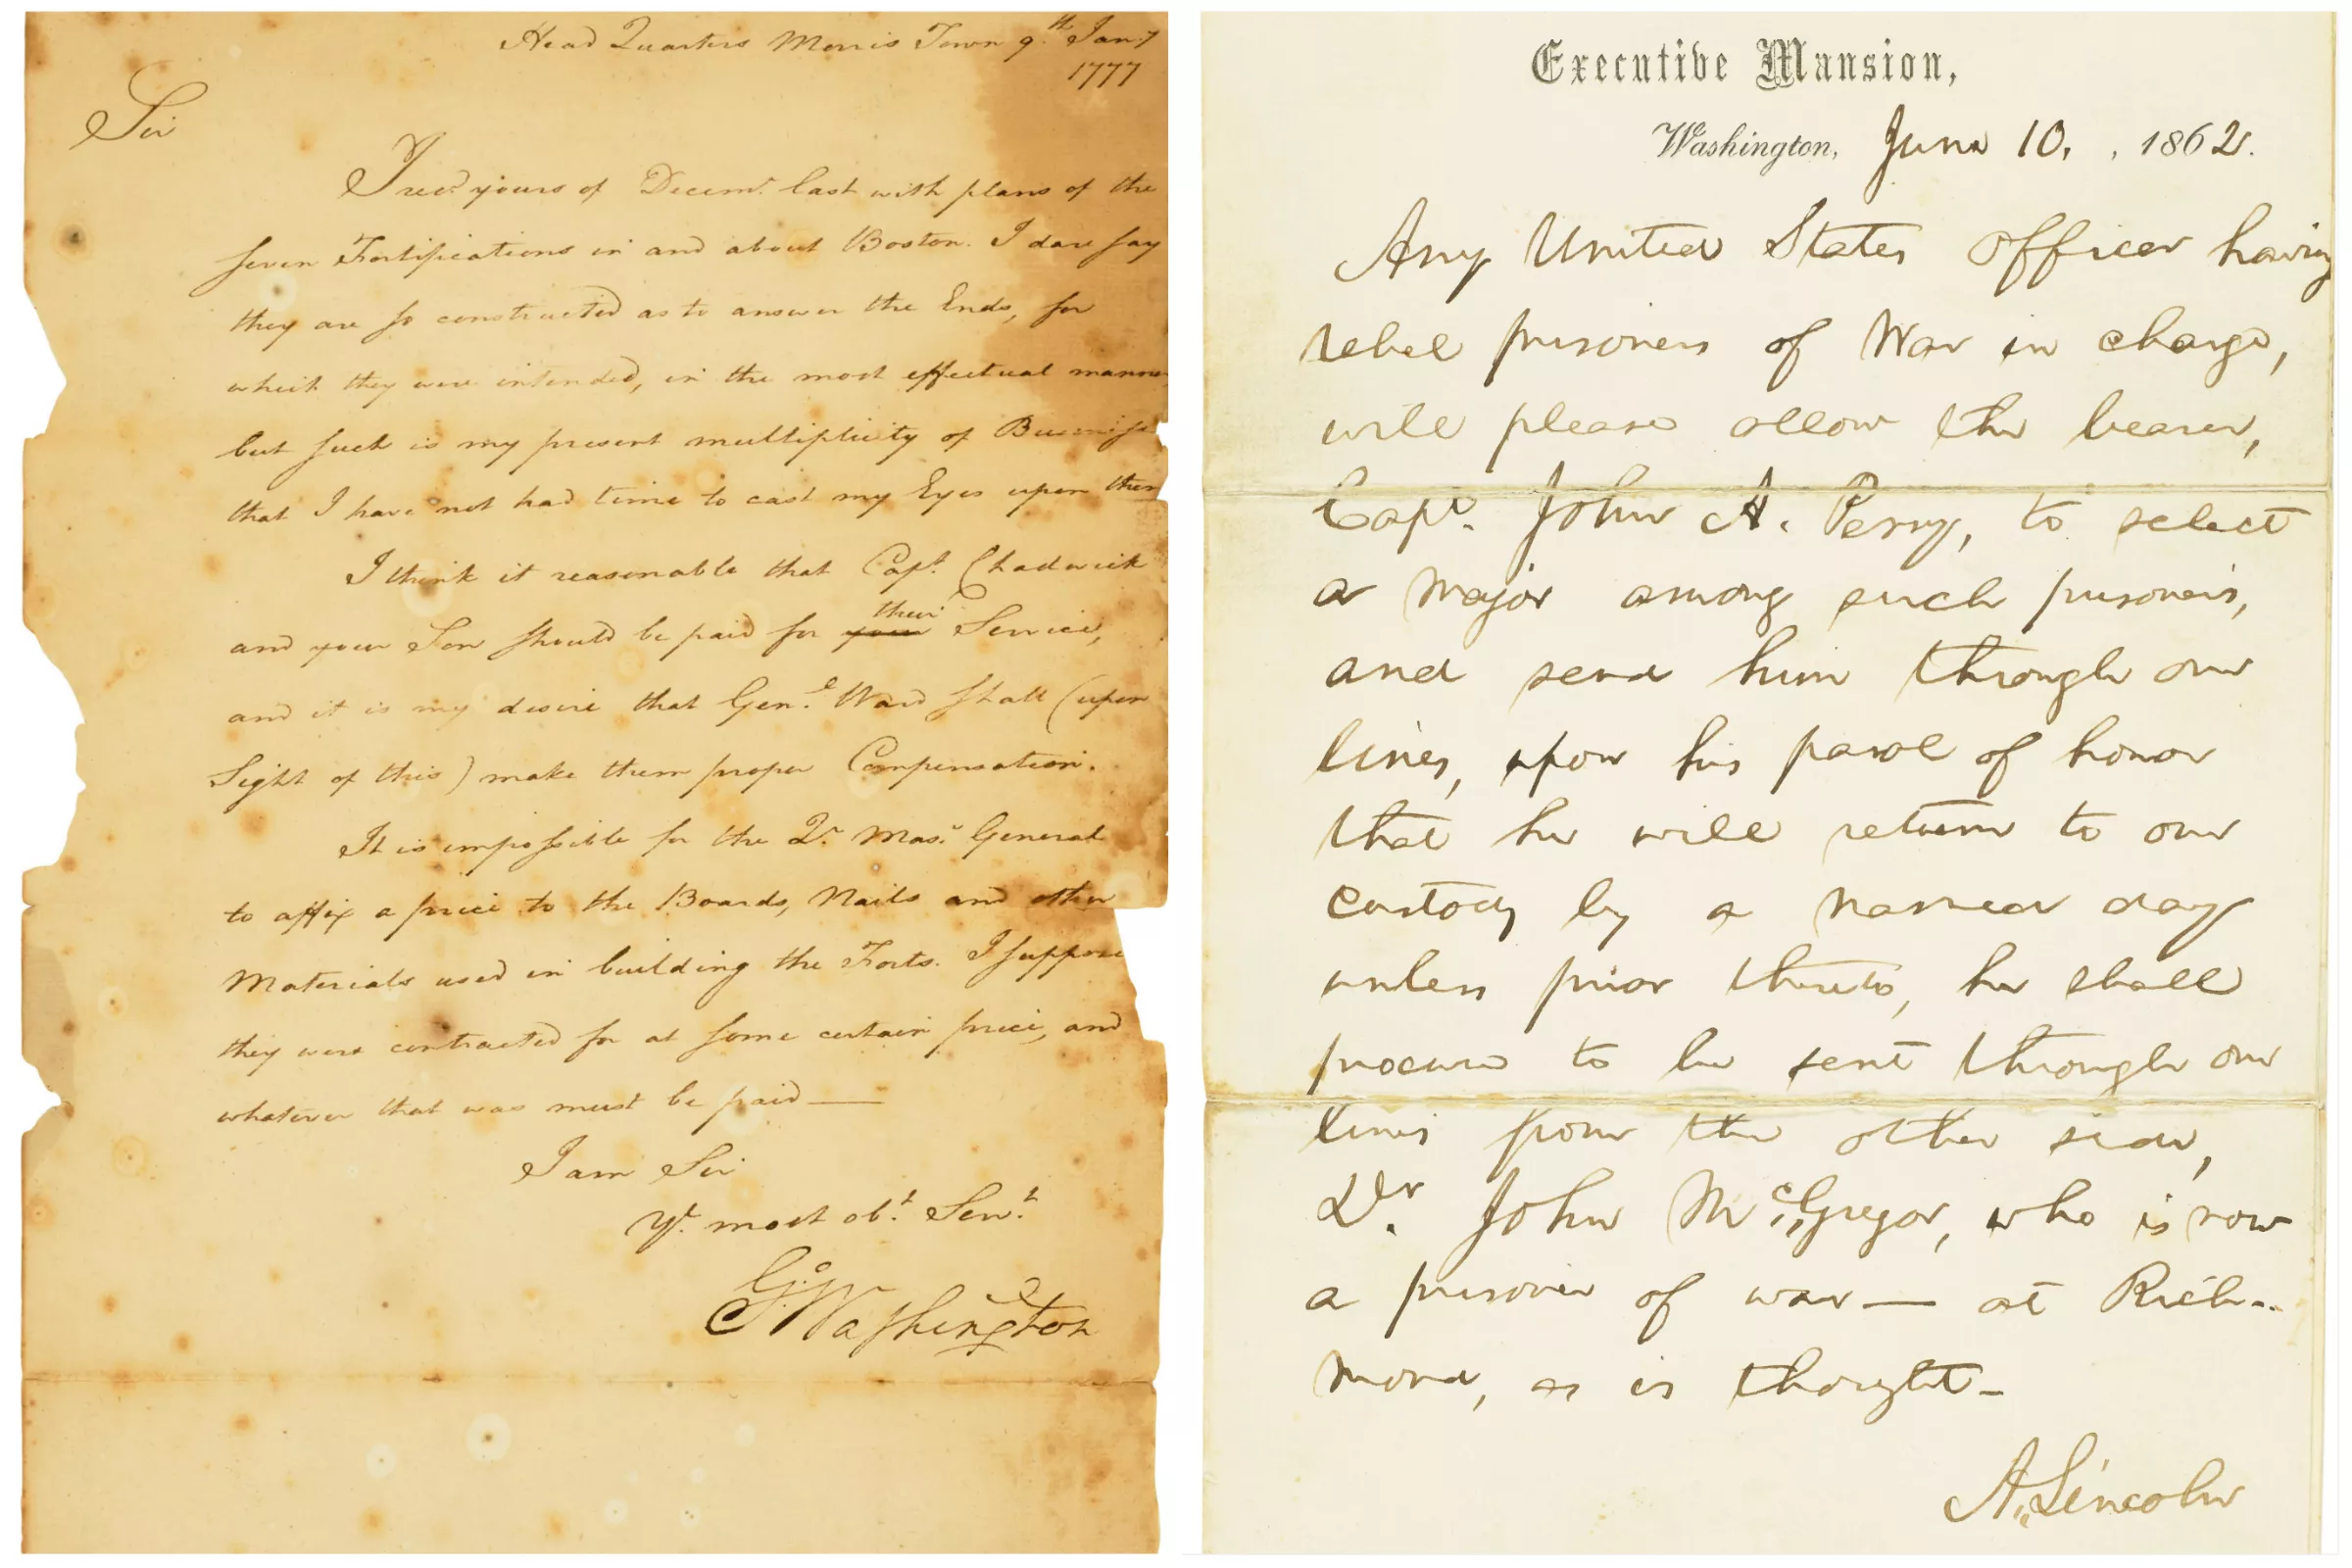 Head Quarters Morris Town 9.th Jany
1777
Sir
I recd. yours of Decemr. last with plans of the
seven Fortifications in and about Boston. I dare say
they are so constructed as to answer the Ends, for
which they were intended, in the most effectual manner
but such is my present multiplicity of Business
that I have not had time to cast my Eyes upon them
I think it reasonable that Capt. Chadwick
and your Son should be paid for your their Service,
and it is my desire that Genl. Ward shall (upon
Sight of this) make them proper Compensation.
It is impossible for the Qr. Masr. General
to affix a price to the Boards, Nails and other
Materials used in building the Forts. I suppose
they were contracted for at some certain price, and
whatever that was must be paid —
I am Sir
Yr. most obt. Servt.
Go. Washington
Executive Mansion,
Washington, June 10, , 1862.
Any United States officer having
rebel prisoners of War in charge,
will please allow the bearer,
Capt. John A. Perry, to select
a Major among such prisoners,
and send him through our
lines, upon his parol of honor
that he will return to our
custody by a named day
unless prior thereto, he shall
procure to be sent through our
lines from the other side,
Dr. John McGregor, who is now
a prisoner of war — at Rich-
mond, as is thought—
A. Lincoln